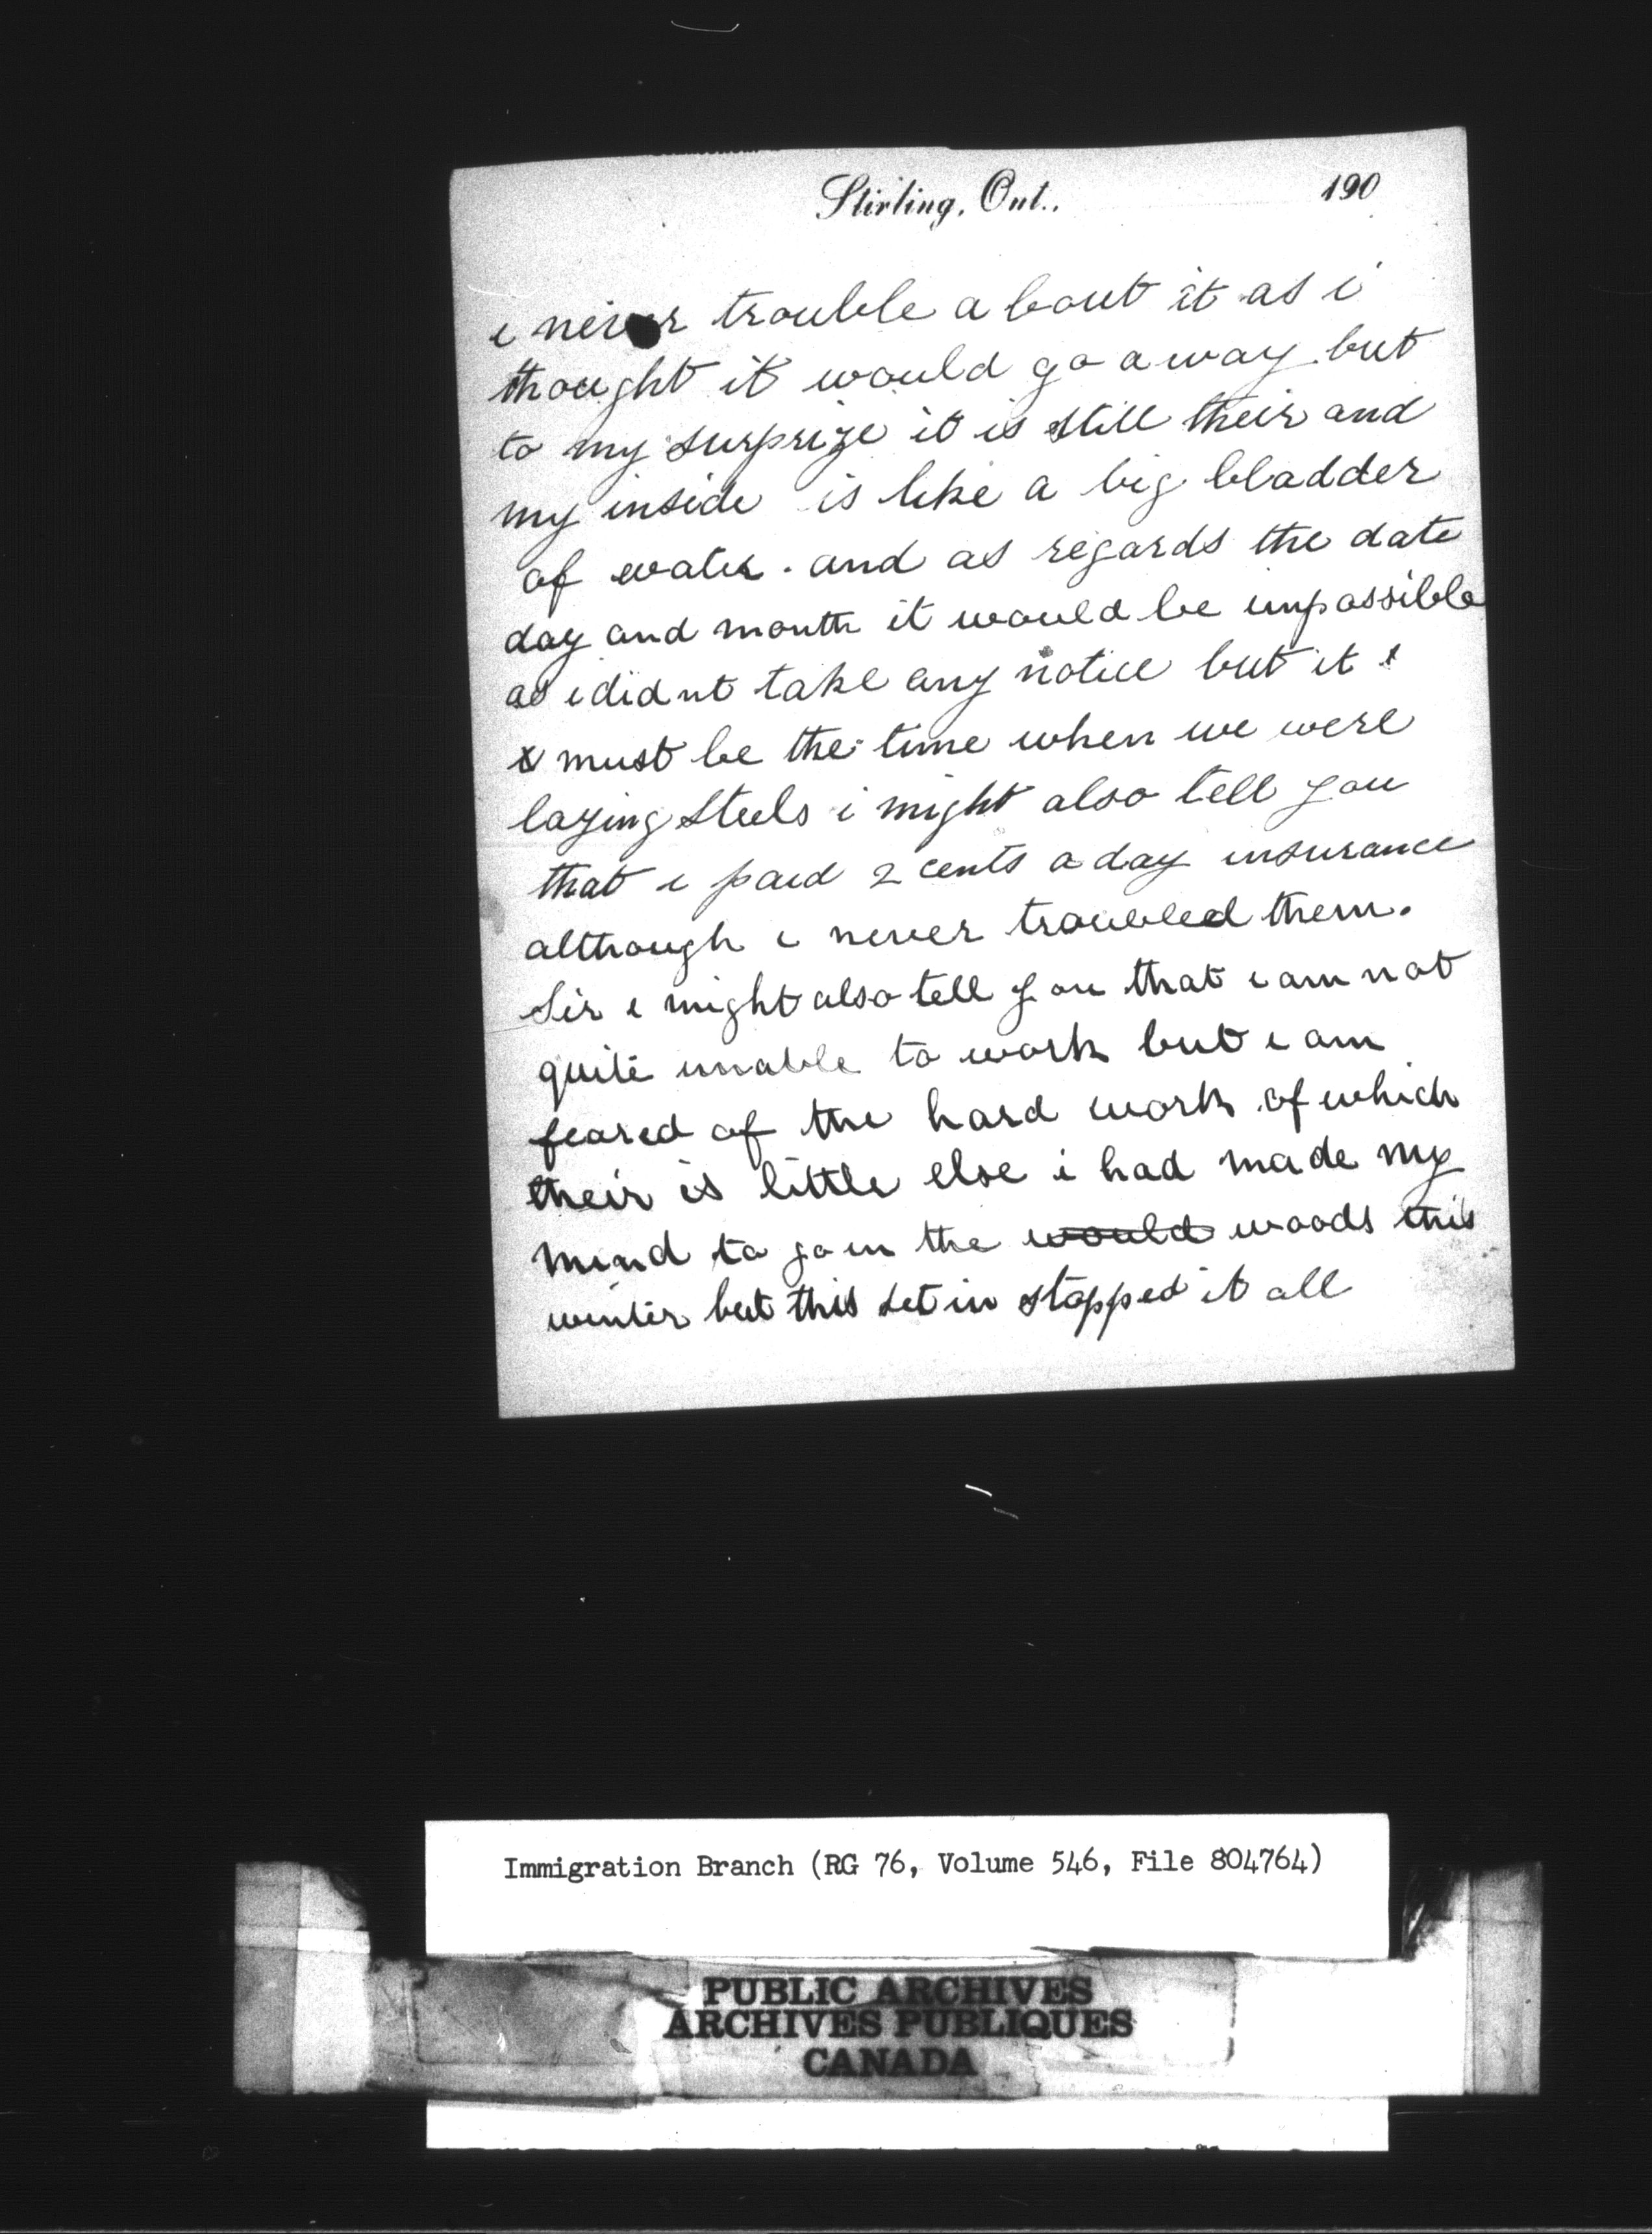 Stirling, Ont., 190
i never trouble a bout it as i
thought it would go a way but
to my surprize it is still their and
my inside is like a big bladder
of water. and as regards the date
day and month it would be impossible
as i didnt take any notice but it
must be the time when we were
laying Steels i might also tell you
that i paid 2 cents a day insurance
although i never troubled them.
Sir i might also tell you that i am not
quite unable to work but i am
feared of the hard work of which
their is little else i had made my
mind to go in the would woods this
winter but this set in stopped it all
Immigration Branch (RG 76, Volume 546, File 804764)
PUBLIC ARCHIVES
ARCHIVES PUBLIQUES
CANADA